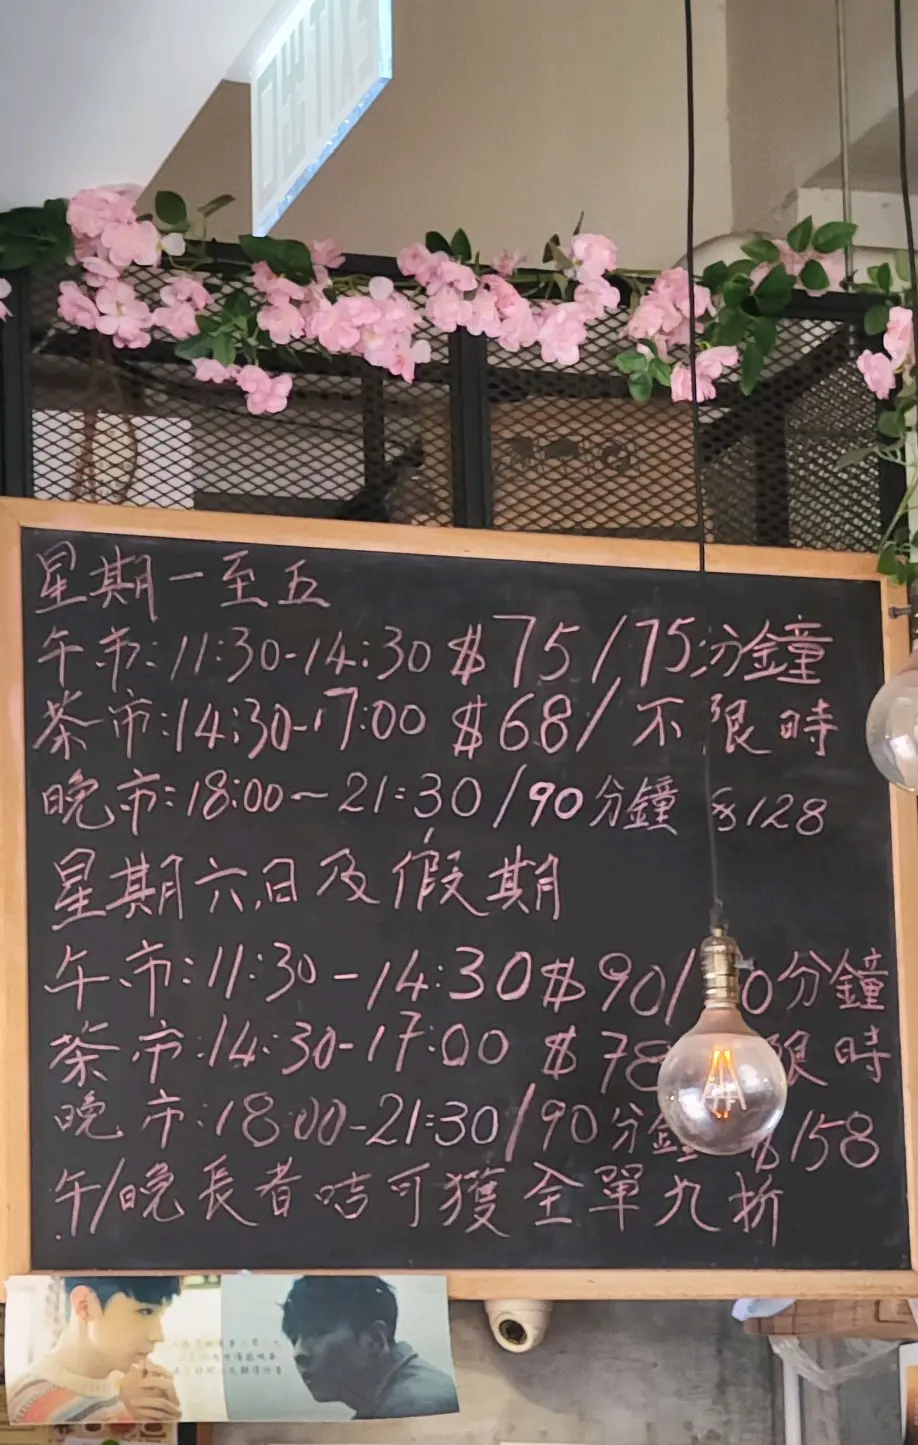 星期一至五
午市:11:30-14:30 $75/75分鐘
茶市:14:30-17:00 $68/不限時
晚市:18:00-21:30/90分鐘 $128
星期六,日及假期
午市:11:30-14:30 $90/ 0分鐘
茶市:14:30-17:00 $78 限時
晚市:18:00-21:30/90分鐘 $158
午/晚長者咭可獲全單九折